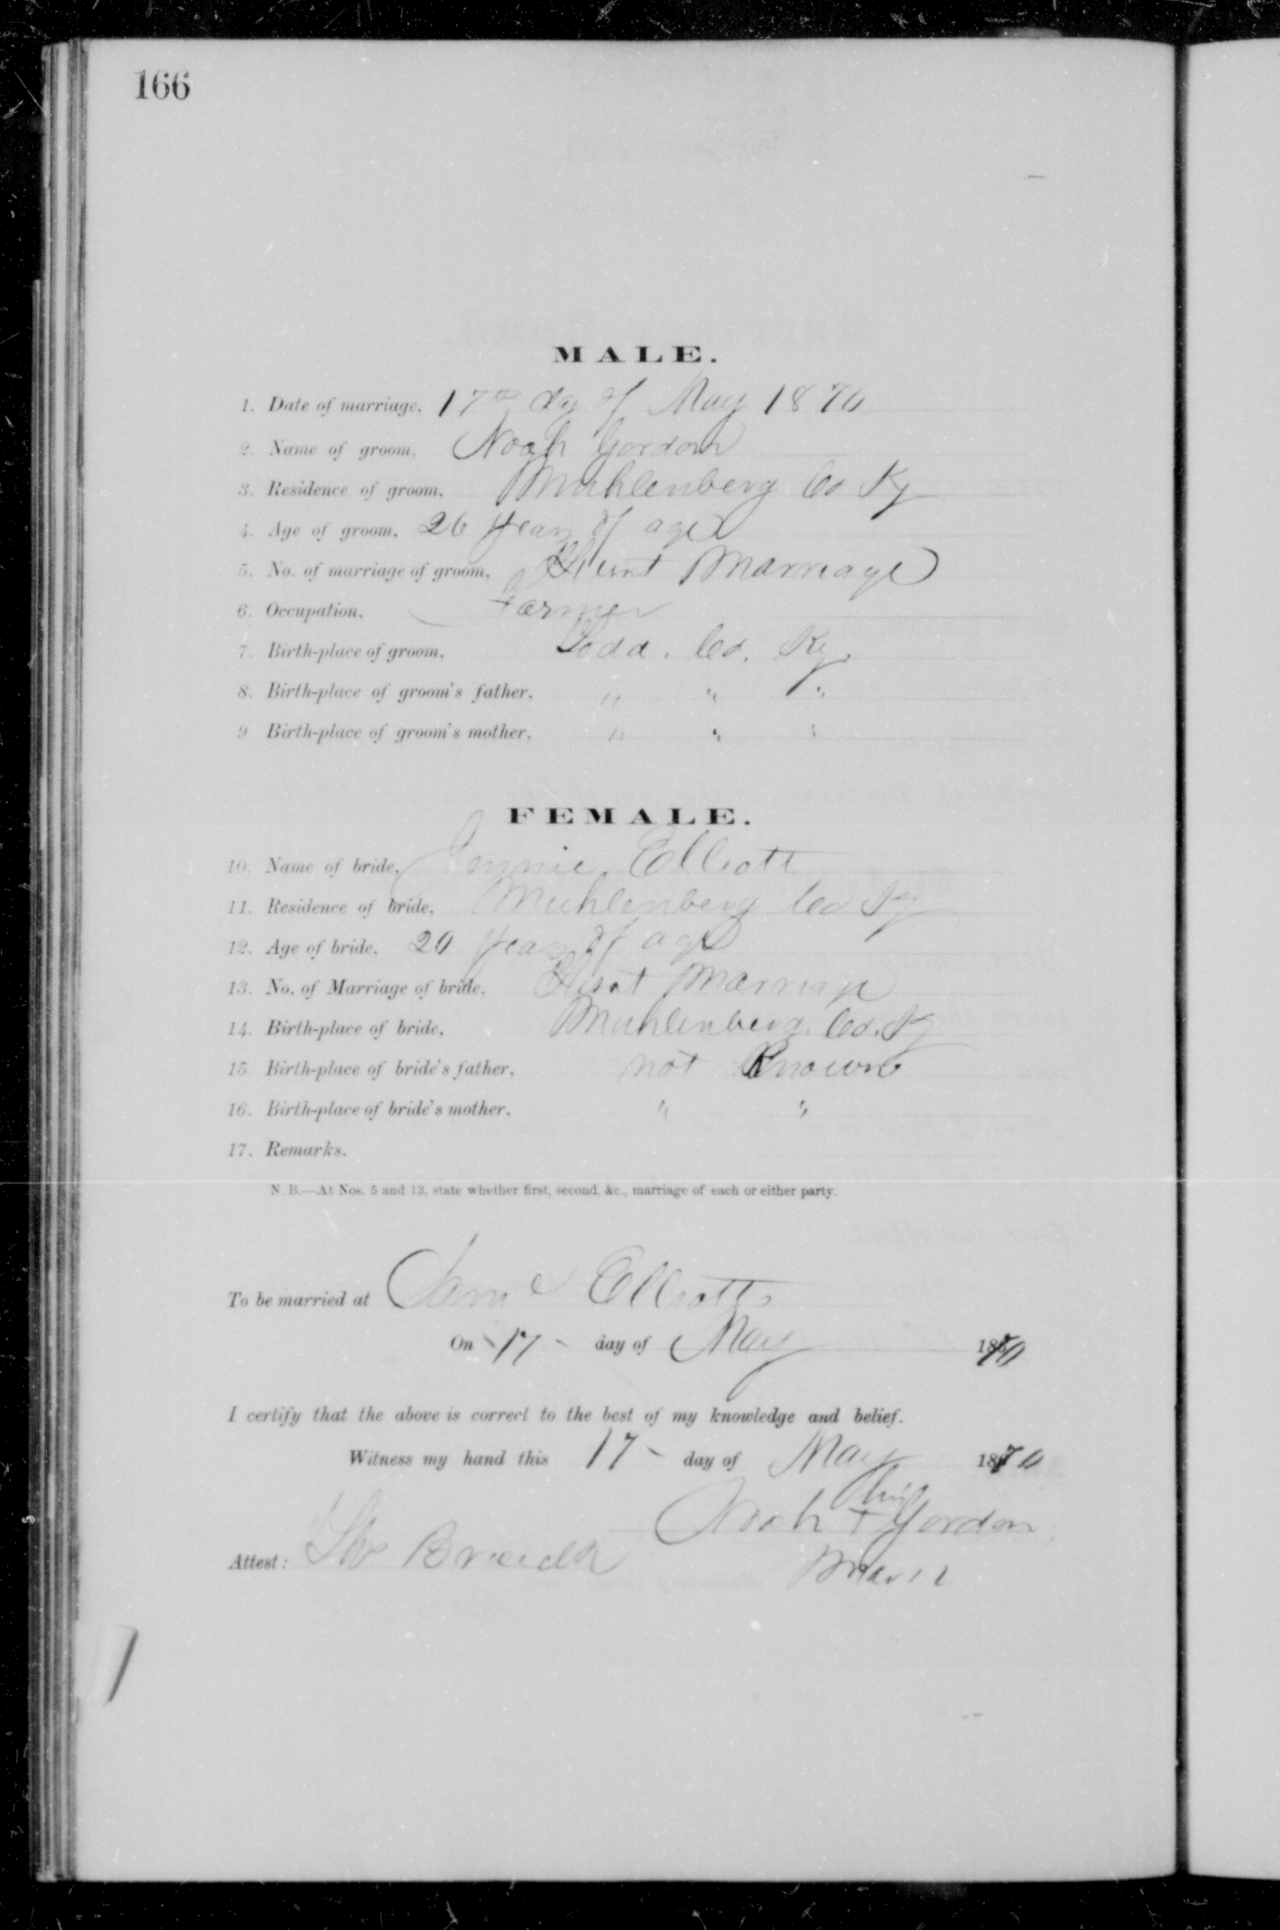 166
MALE.
1. Date of marriage, 17th dy of May 1870
2. Name of groom, Noah Gordon
3. Residence of groom, Muhlenberg Co Ky
4. Age of groom, 26 years of age
5. No. of marriage of groom, First Marriage
6. Occupation, Farmer
7. Birth-place of groom, Todd. Co. Ky.
8. Birth-place of groom's father, " " "
9 Birth-place of groom's mother, " " "
FEMALE.
10. Name of bride, Jennie Elliott
11. Residence of bride, Muhlenberg Co Ky
12. Age of bride, 20 years of age
13. No. of Marriage of bride, First Marriage
14. Birth-place of bride, Muhlenberg. Co. Ky
15. Birth-place of bride's father, not Known
16. Birth-place of bride's mother, " "
17. Remarks.
N. B.—At Nos. 5 and 13, state whether first, second, &c., marriage of each or either party.
To be married at Saml Elliotts
On 17 day of May 1870
I certify that the above is correct to the best of my knowledge and belief.
Witness my hand this 17 day of May 1870
his
Noah + Gordon
Attest: Tho
mark